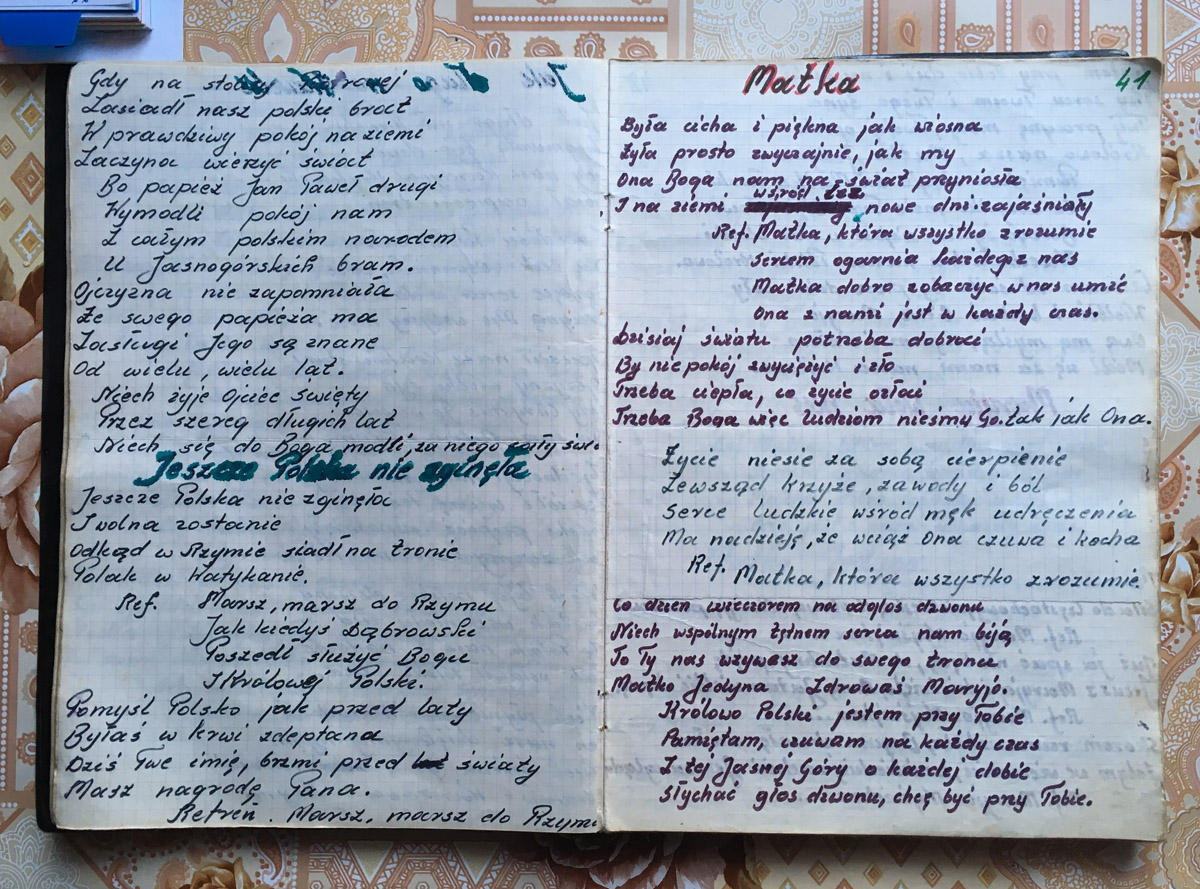 Gdy na stolicy Piotrowej
Zasiadł nasz polski brat
W prawdziwy pokój na ziemi
Zaczyna wierzyć świat
Bo papież Jan Paweł drugi
Wymodli pokój nam
Z całym polskim narodem
U Jasnogórskich bram.
Ojczyzna nie zapomniała
Że swego papieża ma
Zasługi Jego są znane
Od wielu, wielu lat.
Niech żyje Ojciec święty
Przez szereg długich lat
Niech się do Boga modli, za niego cały świ
Jeszcze Polska nie zginęła
Jeszcze Polska nie zginęła
I wolna zostanie
Odkąd w Rzymie siadł na tronie
Polak w Watykanie.
Ref. Marsz, marsz do Rzymu
Jak kiedyś Dąbrowski
Poszedł służyć Bogu
I Królowej Polski.
Pomyśl Polsko jak przed laty
Byłaś w krwi zdeptana
Dziś Twe imię, brzmi przed światy
Masz nagrodę Pana.
Refreń. Marsz, marsz do Rzymu
Matka
41
Była cicha i piękna jak wiosna
Żyła prosto zwyczajnie, jak my
Ona Boga nam na świat przyniosła
wśród łez
I na ziemi nowe dni zajaśniały
Ref. Matka, która wszystko zrozumie
Sercem ogarnia każdego z nas
Matka dobro zobaczyć w nas umié
Ona z nami jest w każdy czas.
Dzisiaj światu potrzeba dobroci
By niepokój zwyciężyć i zło
Trzeba ciepła, co życie ozłaci
Trzeba Boga więc ludziom nieśmy Go. tak jak Ona.
Życie niesie za sobą cierpienie
Zewsząd krzyże, zawody i ból
Serce ludzkie wśród męk udręczenia
Ma nadzieję, że wciąż Ona czuwa i kocha
Ref. Matka, która wszystko zrozumie.
Co dzień wieczorem na odgłos dzwonu
Niech wspólnym tętnem serca nam biją
To Ty nas wzywasz do swego tronu
Matko Jedyna Zdrowaś Maryjo.
Królowo Polski jestem przy Tobie
Pamiętam, czuwam na każdy czas
Z tej Jasnej Góry o każdej dobie
Słychać głos dzwonu, chcę być przy Tobie.